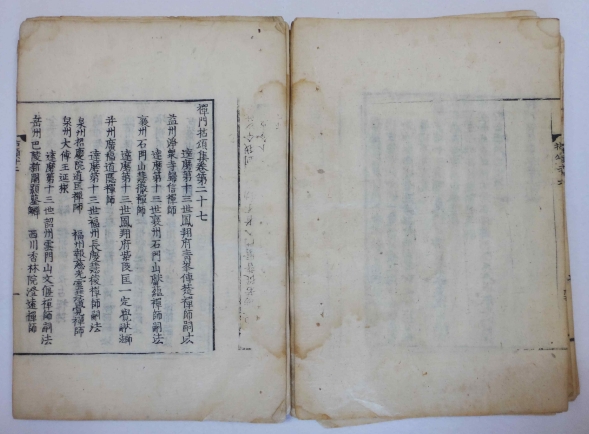 禪門拈頌集卷第二十七
達磨第十三世鳳翔府青峯傳楚禪師嗣法
益州淨衆寺歸信禪師
達磨第十三世襄州石門山獻蘊禪師嗣法
襄州石門山慧徹禪師
達磨第十三世鳳翔府紫陵匡一定覺禪師
并州廣福道隱禪師
達磨第十三世福州長慶慧稜禪師嗣法
泉州招慶院道匡禪師 福州報慈光雲慧覺禪師
泉州大傅王延彬
達磨第十三世韶州雲門山文偃禪師嗣法
岳州巴陵新開顥鑒禪師 西川香林院澄遠禪師